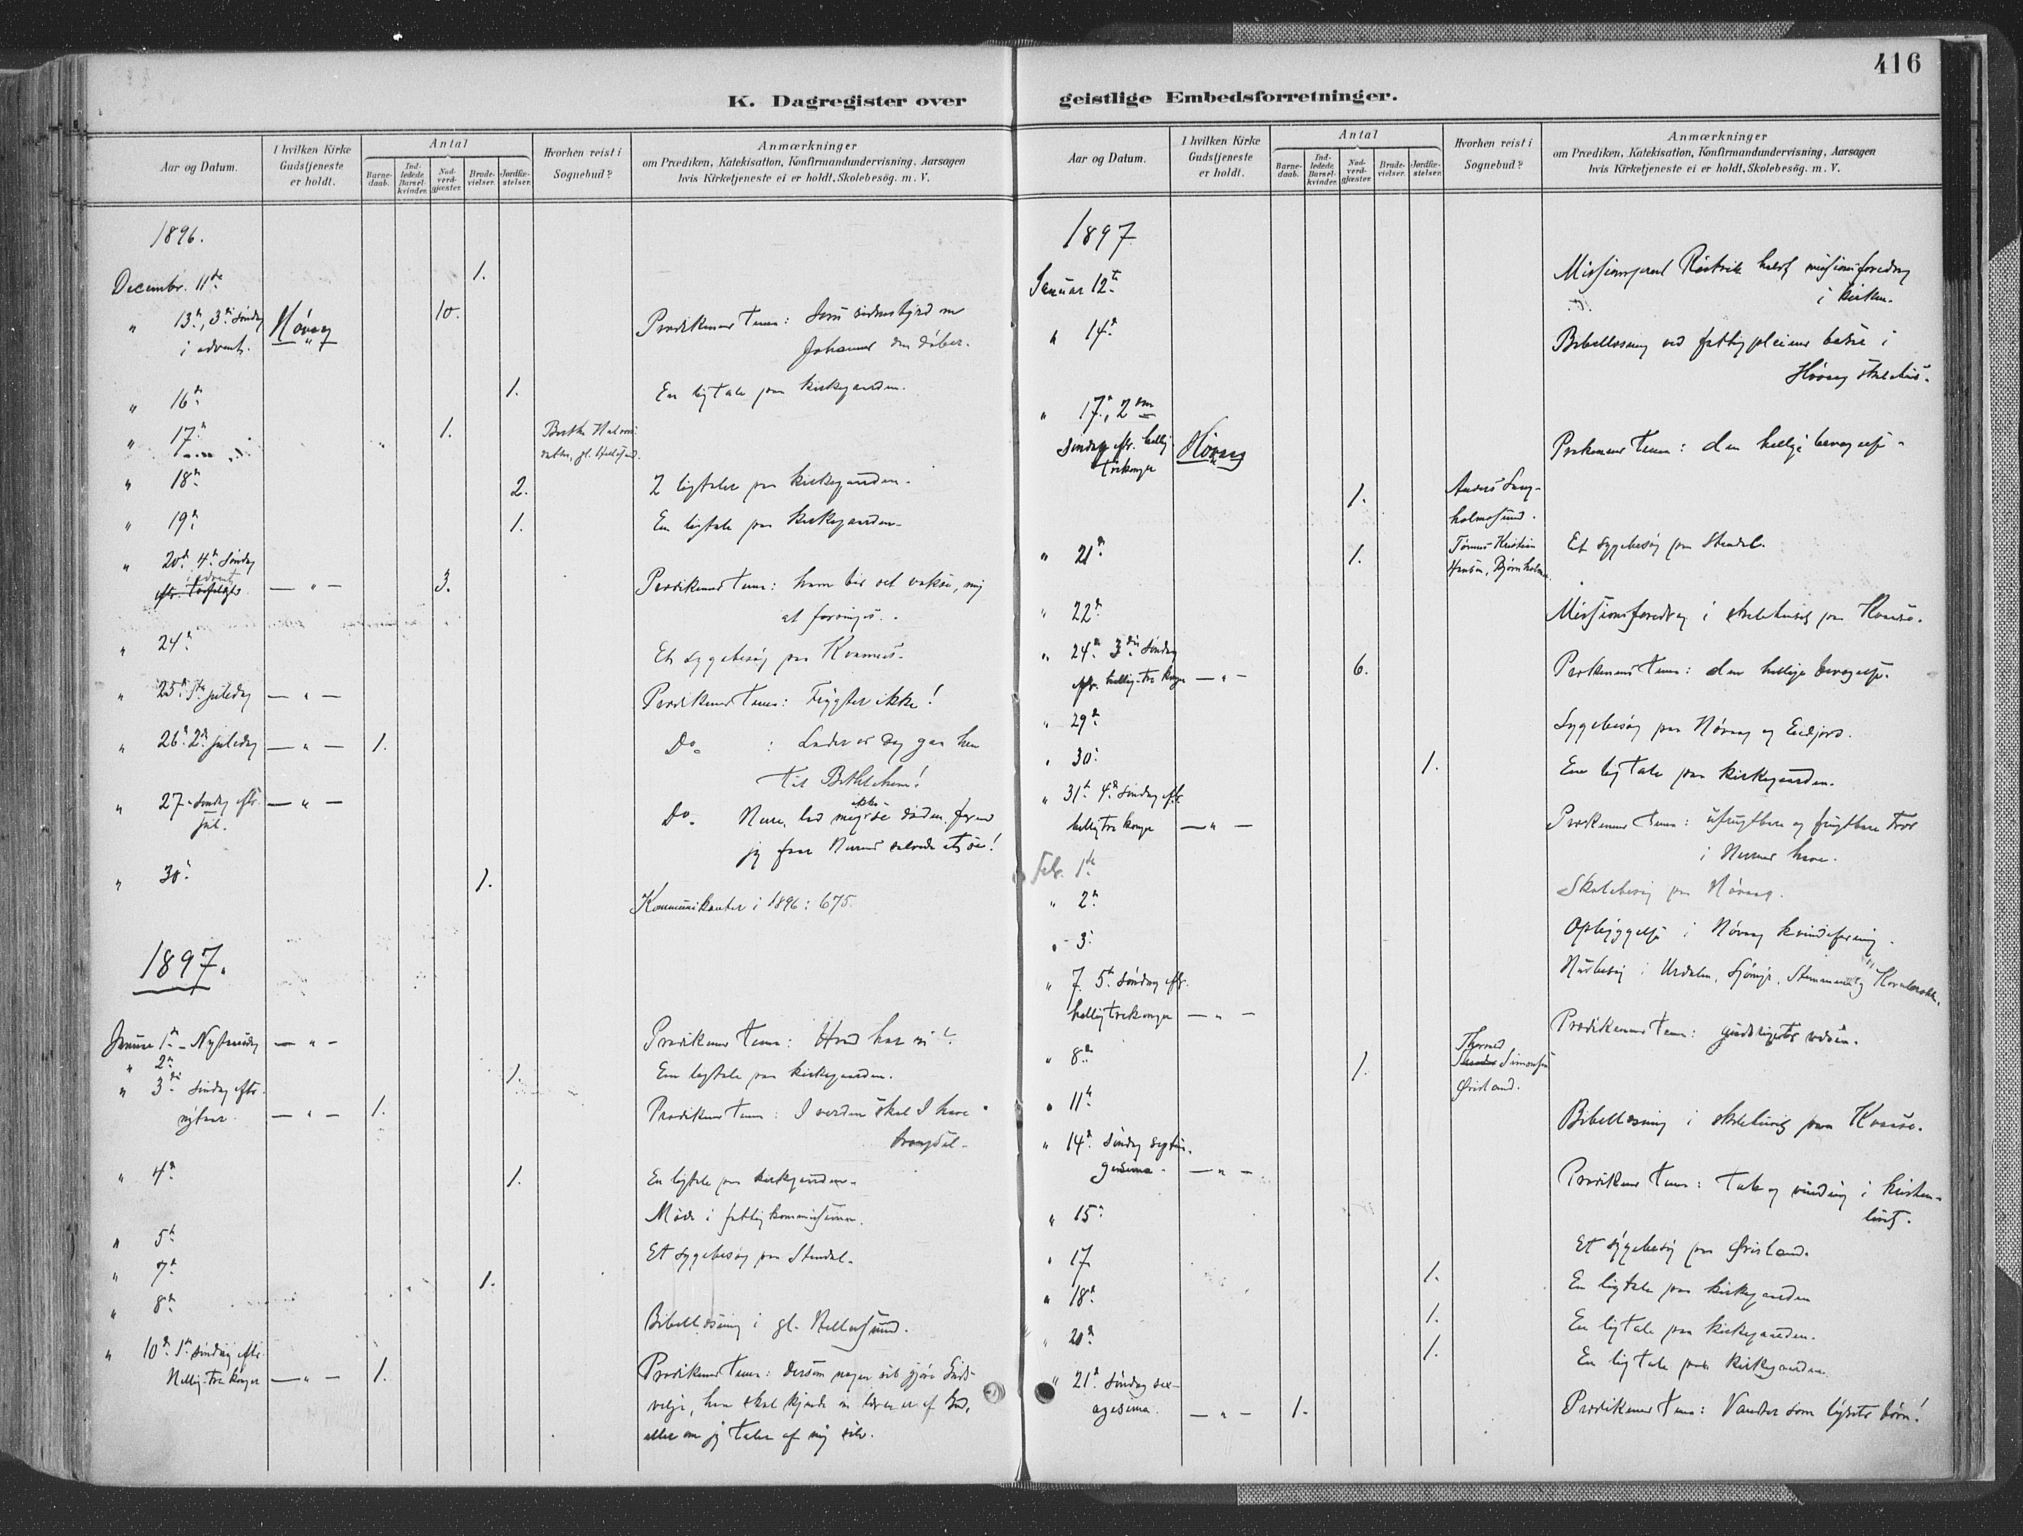 416
K. Dagregister over geistlige Embedsforretninger.
Aar og Datum.
I hvilken Kirke Gudstjeneste er holdt.
Antal
Barnedaab.
Indledede Barselkvinder.
Nadverdgjæster.
Brudevielser.
Jordfæstelser.
Hvorhen reist i Sognebud?
Anmærkninger
om Prædiken, Katekisation, Konfirmandundervisning, Aarsagen
hvis Kirketjeneste ei er holdt, Skolebesøg. m. V.
1896.
Decembr. 11te 1.
" 13de, 3de søndag i advent. Høvag 10. Prædikenens tema: vidnesbyrd om
Johannes den døber.
" 16de 1. En ligtale paa kirkegaarden.
" 17de 1. gl. Hellesund.
" 18de 2. 2 ligtaler paa kirkegaarden.
" 19de 1. En ligtale paa kirkegaarden.
" 20de 4de Søndag
i advent — " — 3. Prædikenens tema: ham bør det vokse, mig
at forringes.
" 24de Et sygebesøg paa
" 25de 1ste juledag — " — Prædikenens tema: Frygter ikke!
" 26de 2den juledag — " — 1. Do : Lader os dog gaa hen
til Bethlehem!
" 27de Søndag eftr. jul. — " — Do Herre, lad mig ikke se døden, førend
jeg faar Herrens salvede at se!
" 30te 1.
Kommunikanter i 1896: 675.
1897.
Januar 1ste Nytaarsdag — " — Prædikenens tema: Hvad har vi?
" 2den 1. En ligtale paa kirkegaarden.
" 3die søndag eftr.
nytaar. — " — 1. Prædikenens tema: I verden skal I have
trængsel.
" 4de 1. En ligtale paa kirkegaarden.
Møde i fattigkommissionen.
" 5te Et sygebesøg paa Stendal.
" 7de 1.
" 8de Bibellæsning i gl. Hellesund.
" 10de 1ste søndag eftr.
Hellig-tre konger — " — 1. Prædikenens tema: dersom nogen vil gjøre Guds
vilje, han skal kjende om læren er af Gud,
eller om jeg taler af mig selv.
Aar og Datum.
I hvilken Kirke Gudstjeneste er holdt.
Antal
Barnedaab.
Indledede Barselkvinder.
Nadverdgjæster.
Brudevielser.
Jordfæstelser.
Hvorhen reist i Sognebud?
Anmærkninger
om Prædiken, Katekisation, Konfirmandundervisning, Aarsagen
hvis Kirketjeneste ei er holdt, Skolebesøg. m. V.
1897
Januar 12te Røstvik holdt missionsforedrag
i kirken.
" 14de Bibellæsning ved i
Høvag
" 17de, 2den
søndag eftr. hellig
trekonger Høvag tema: den hellige bevægelse.
1. Anders
holmsund.
" 21de 1. Kristian
Hansen, Et sygebesøg paa Stendal.
" 22de Missionsforedrag i skolehuset paa
" 24de 3die søndag
eftr. hellig-tre konger — " — 6. tema: den hellige bevægelse.
" 29de Sygebesøg paa Høvag og
" 30te 1. En ligtale paa kirkegaarden.
" 31te 4de søndag eftr.
hellig tre konger — " — Prædikenens tema: ufrugtbare og frugtbare trær
i Herrens have.
Febr. 1ste Skolebesøg paa Høvag.
" 2den Opbyggelse i Høvag kvindeforening.
" 3die Husbesøg i
" 7 5te Søndag eftr.
hellig trekonger — " — Prædikenens tema: gudsrigets
" 8de 1. Simonsen
Ørisland.
" 11te Bibellæsning i skolehuset paa
" 14de søndag septua-
gesima — " — Prædikenens tema: Tab og vinding i kristen-
livet.
" 15de Et sygebesøg paa Ørisland.
" 17 1. En ligtale paa kirkegaarden
" 18de 1. En ligtale paa kirkegaarden.
" 20de 1. En ligtale paa kirkegaarden.
" 21de søndag sex-
agesima. — " — 1. Prædikenens tema: Vandrer som lysets børn!